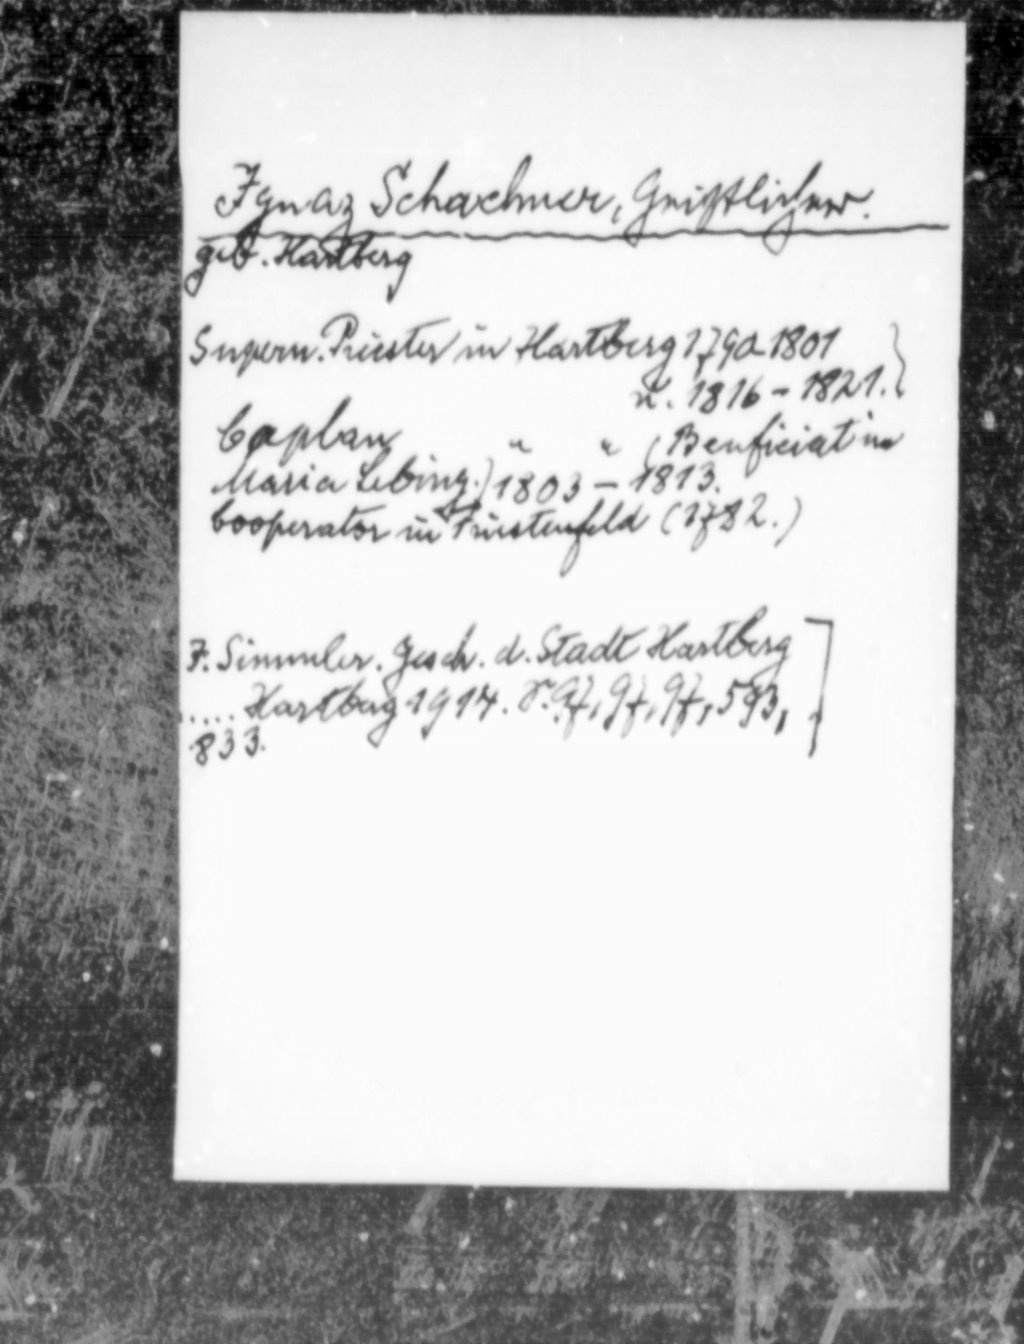 Ignaz Schachner, Geistlicher.
geb. Hartberg
Supern. Priester in Hartberg 1790–1801
u. 1816 – 1821.}
Caplan " " (Benficiat in
Maria Lebing.) 1803 – 1813.
Cooperator in Fürstenfeld (1782.)
F. Simmler. Gesch. d. Stadt Hartberg
..... Hartberg 1914. S. 97, 97, 97, 593,
833.]